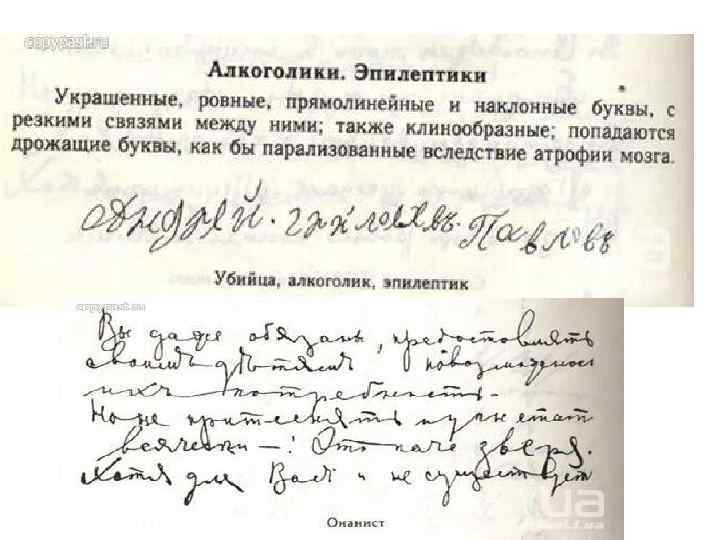 copypast.ru
Алкоголики. Эпилептики
Украшенные, ровные, прямолинейные и наклонные буквы, с
резкими связями между ними; также клинообразные; попадаются
дрожащие буквы, как бы парализованные вследствие атрофии мозга.
Павловъ
Убийца, алкоголик, эпилептик
copypast.ru
Вы даже обязаны, предоставлять
своимъ дѣтямъ
ихъ потребность.
Но не притеснять
всячески —! Это паче зверя.
Хотя для Васъ и не существует
Онанист
ua